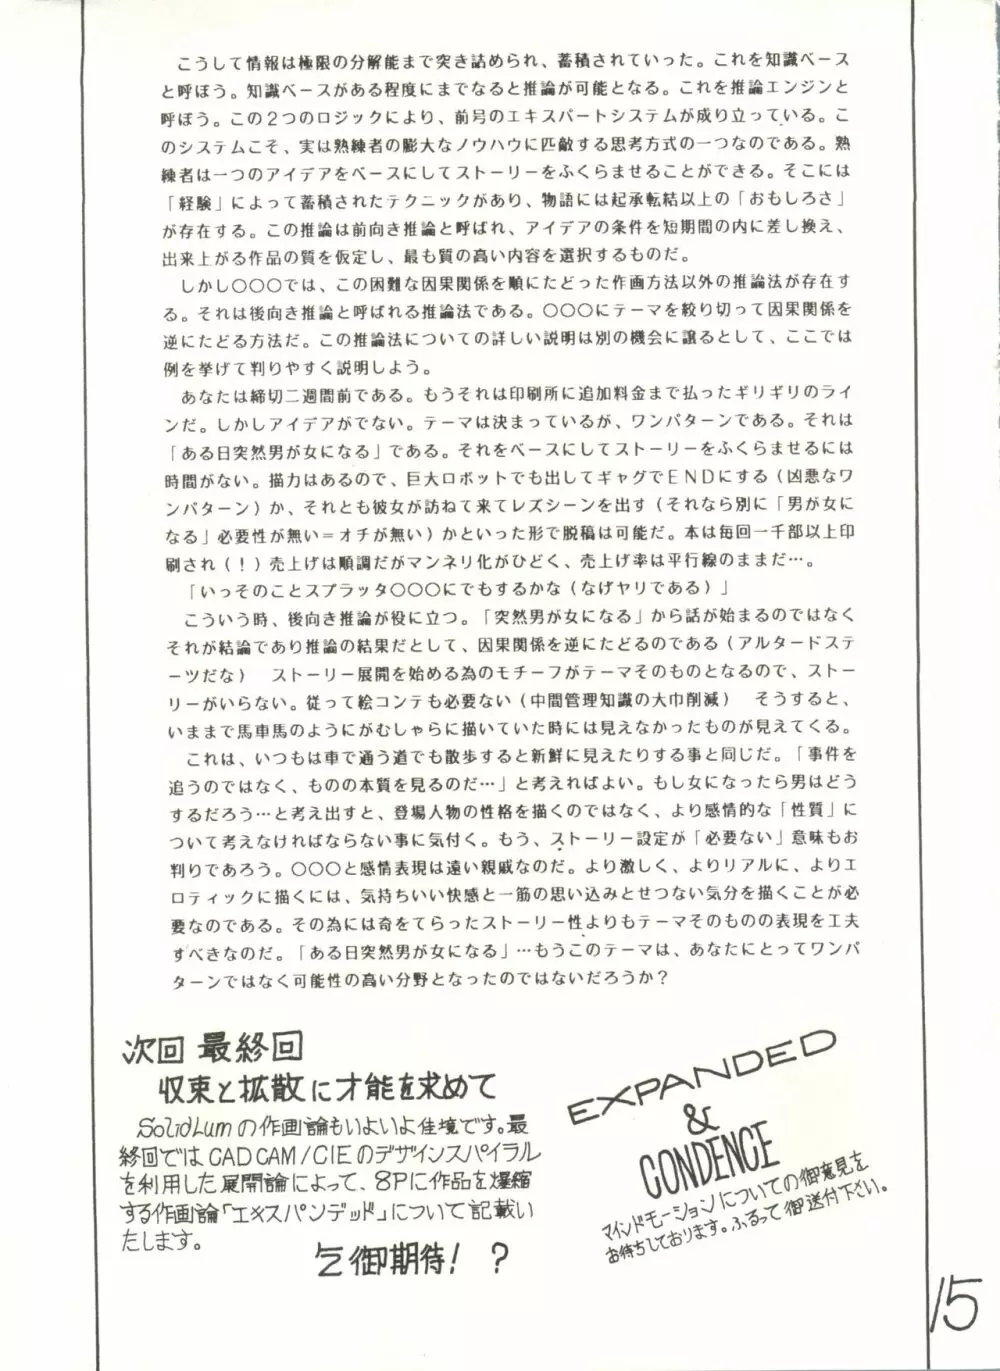 こうして情報は極限の分解能まで突き詰められ、蓄積されていった。これを知識ベース
と呼ぼう。知識ベースがある程度にまでなると推論が可能となる。これを推論エンジンと
呼ぼう。この２つのロジックにより、前号のエキスパートシステムが成り立っている。こ
のシステムこそ、実は熟練者の膨大なノウハウに匹敵する思考方式の一つなのである。熟
練者は一つのアイデアをベースにしてストーリーをふくらませることができる。そこには
「経験」によって蓄積されたテクニックがあり、物語には起承転結以上の「おもしろさ」
が存在する。この推論は前向き推論と呼ばれ、アイデアの条件を短期間の内に差し換え、
出来上がる作品の質を仮定し、最も質の高い内容を選択するものだ。
しかし〇〇〇では、この困難な因果関係を順にたどった作画方法以外の推論法が存在す
る。それは後向き推論と呼ばれる推論法である。〇〇〇にテーマを絞り切って因果関係を
逆にたどる方法だ。この推論法についての詳しい説明は別の機会に譲るとして、ここでは
例を挙げて判りやすく説明しよう。
あなたは締切二週間前である。もうそれは印刷所に追加料金まで払ったギリギリのライ
ンだ。しかしアイデアがでない。テーマは決まっているが、ワンパターンである。それは
「ある日突然男が女になる」である。それをベースにしてストーリーをふくらませるには
時間がない。描力はあるので、巨大ロボットでも出してギャグでＥＮＤにする（凶悪なワ
ンパターン）か、それとも彼女が訪ねて来てレズシーンを出す（それなら別に「男が女に
なる」必要性が無い＝オチが無い）かといった形で脱稿は可能だ。本は毎回一千部以上印
刷され（！）売上げは順調だがマンネリ化がひどく、売上げ率は平行線のままだ…。
「いっそのことスプラッタ〇〇〇にでもするかな（なげヤリである）」
こういう時、後向き推論が役に立つ。「突然男が女になる」から話が始まるのではなく
それが結論であり推論の結果だとして、因果関係を逆にたどるのである（アルタードステ
ーツだな）　ストーリー展開を始める為のモチーフがテーマそのものとなるので、ストー
リーがいらない。従って絵コンテも必要ない（中間管理知識の大巾削減）　そうすると、
いままで馬車馬のようにがむしゃらに描いていた時には見えなかったものが見えてくる。
これは、いつもは車で通う道でも散歩すると新鮮に見えたりする事と同じだ。「事件を
追うのではなく、ものの本質を見るのだ…」と考えればよい。もし女になったら男はどう
するだろう…と考え出すと、登場人物の性格を描くのではなく、より感情的な「性質」に
ついて考えなければならない事に気付く。もう、ストーリー設定が「必要ない」意味もお
判りであろう。〇〇〇と感情表現は遠い親戚なのだ。より激しく、よりリアルに、よりエ
ロティックに描くには、気持ちいい快感と一筋の思い込みとせつない気分を描くことが必
要なのである。その為には奇をてらったストーリー性よりもテーマそのものの表現を工夫
すべきなのだ。「ある日突然男が女になる」…もうこのテーマは、あなたにとってワンパ
ターンではなく可能性の高い分野となったのではないだろうか？
次回 最終回
収束と拡散に才能を求めて
SolidLumの作画論もいよいよ佳境です。最
終回ではCADCAM/CIEのデザインスパイラル
を利用した展開論によって、8Pに作品を爆縮
する作画論「エキスパンデッド」について記載い
たします。
乞御期待！？
EXPANDED
&
CONDENCE
マインドモーションについての御意見を
お待ちしております。ふるって御送付下さい。
15